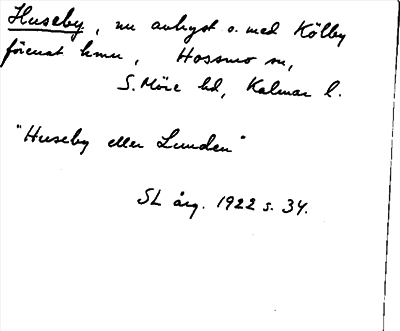 Huseby, nu avhyst o. med Kölby
förenat hmn, Hossmo sn,
S. Möre hd, Kalmar l.
"Huseby eller Lunden"
SL årg. 1922 s. 34.